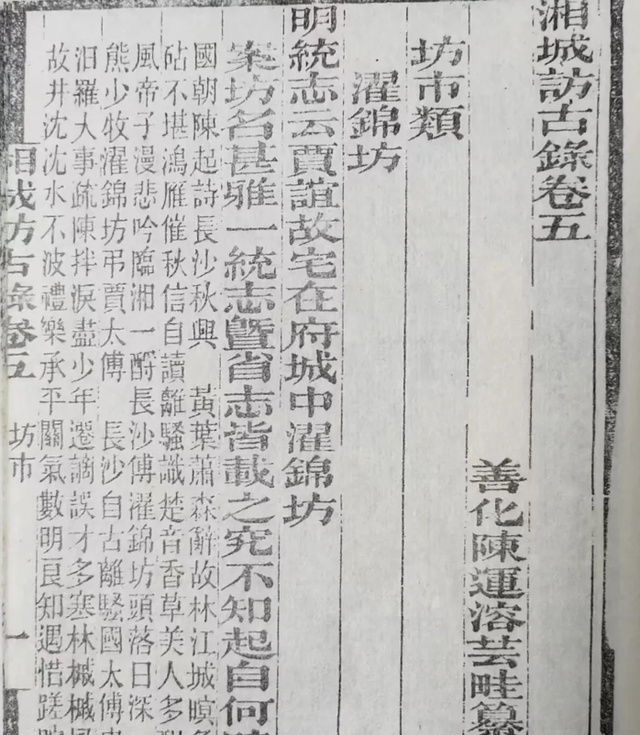 湘城訪古錄卷五
善化陳運溶芸畦纂
坊市類
濯錦坊
明統志云賈誼故宅在府城中濯錦坊
案坊名甚雅一統志暨省志皆載之究不知起自何
國朝陳起詩長沙秋興 黃葉蕭森辭故林江城暝
砧不堪鴻雁催秋信自讀離騷識楚音香草美人多
風帝子漫悲吟臨湘一酹長沙傅濯錦坊頭落日深
熊少牧濯錦坊弔賈太傅 長沙自古離騷國太傅
汨羅大事疏陳拌淚盡少年遷謫誤才多寒林槭槭
故井沈沈水不波禮樂承平關氣數明良知遇惜蹉
湘城訪古錄卷五 坊市 一